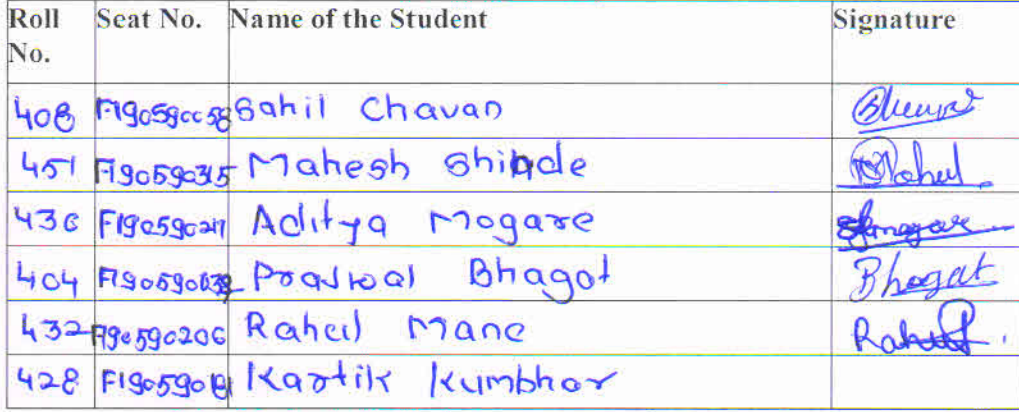 Roll No. Seat No. Name of the Student Signature
408 F190590058 Sahil Chavan
451 F190590315 Mahesh Shinde
436 F190590217 Aditya Mogare
404 Prajwal Bhagat Bhagat
432 F190590206 Rahul Mane Rahul
428 Kartik Kumbhar